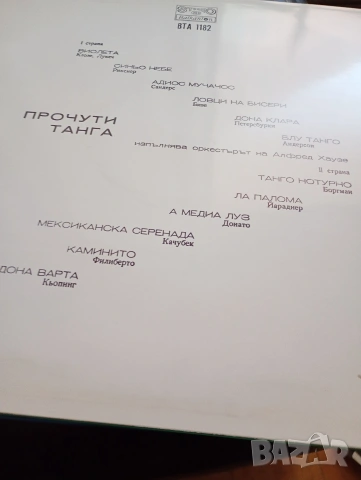 ВТА 1182
I страна
ВИОЛЕТА
СИНЬО НЕБЕ
Рикснер
АДИОС МУЧАЧОС
Сандерс
ЛОВЦИ НА БИСЕРИ
Бизе
ДОНА КЛАРА
Петерсбурски
БЛУ ТАНГО
Андерсон
ПРОЧУТИ
ТАНГА
изпълнява оркестърът на Алфред Хаузе
II страна
ТАНГО НОТУРНО
Боргман
ЛА ПАЛОМА
Йарадиер
А МЕДИА ЛУЗ
Донато
МЕКСИКАНСКА СЕРЕНАДА
Качубек
КАМИНИТО
Филиберто
ДОНА ВАРТА
Кьопинг
BAZAR